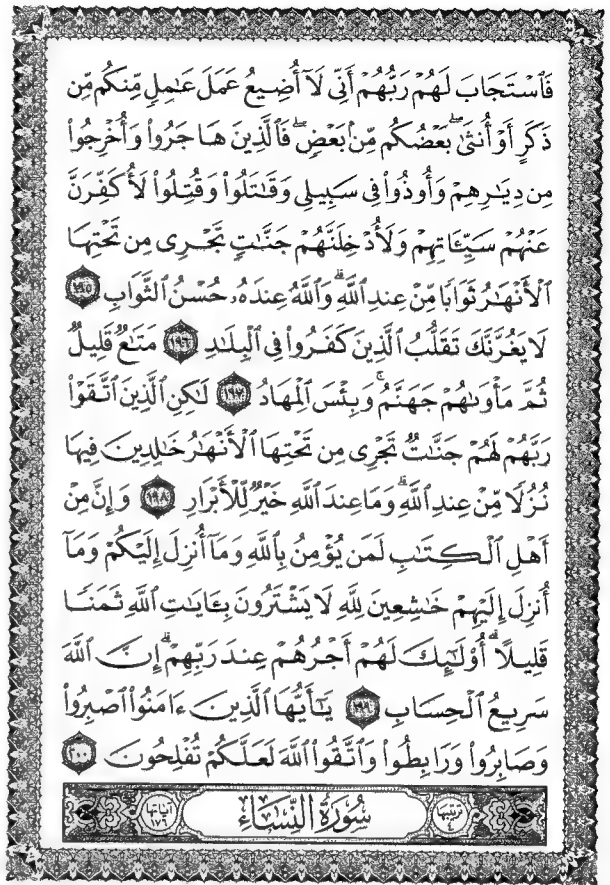 فَٱسۡتَجَابَ لَهُمۡ رَبُّهُمۡ أَنِّي لَآ أُضِيعُ عَمَلَ عَٰمِلٖ مِّنكُم مِّن
ذَكَرٍ أَوۡ أُنثَىٰۖ بَعۡضُكُم مِّنۢ بَعۡضٖۖ فَٱلَّذِينَ هَاجَرُواْ وَأُخۡرِجُواْ
مِن دِيَٰرِهِمۡ وَأُوذُواْ فِي سَبِيلِي وَقَٰتَلُواْ وَقُتِلُواْ لَأُكَفِّرَنَّ
عَنۡهُمۡ سَيِّـَٔاتِهِمۡ وَلَأُدۡخِلَنَّهُمۡ جَنَّٰتٖ تَجۡرِي مِن تَحۡتِهَا
ٱلۡأَنۡهَٰرُ ثَوَابٗا مِّنۡ عِندِ ٱللَّهِۚ وَٱللَّهُ عِندَهُۥ حُسۡنُ ٱلثَّوَابِ ١٩٥
لَا يَغُرَّنَّكَ تَقَلُّبُ ٱلَّذِينَ كَفَرُواْ فِي ٱلۡبِلَٰدِ ١٩٦ مَتَٰعٞ قَلِيلٞ
ثُمَّ مَأۡوَىٰهُمۡ جَهَنَّمُۖ وَبِئۡسَ ٱلۡمِهَادُ ١٩٧ لَٰكِنِ ٱلَّذِينَ ٱتَّقَوۡاْ
رَبَّهُمۡ لَهُمۡ جَنَّٰتٞ تَجۡرِي مِن تَحۡتِهَا ٱلۡأَنۡهَٰرُ خَٰلِدِينَ فِيهَا
نُزُلٗا مِّنۡ عِندِ ٱللَّهِۗ وَمَا عِندَ ٱللَّهِ خَيۡرٞ لِّلۡأَبۡرَارِ ١٩٨ وَإِنَّ مِنۡ
أَهۡلِ ٱلۡكِتَٰبِ لَمَن يُؤۡمِنُ بِٱللَّهِ وَمَآ أُنزِلَ إِلَيۡكُمۡ وَمَآ
أُنزِلَ إِلَيۡهِمۡ خَٰشِعِينَ لِلَّهِ لَا يَشۡتَرُونَ بِـَٔايَٰتِ ٱللَّهِ ثَمَنٗا
قَلِيلًاۚ أُوْلَٰٓئِكَ لَهُمۡ أَجۡرُهُمۡ عِندَ رَبِّهِمۡۗ إِنَّ ٱللَّهَ
سَرِيعُ ٱلۡحِسَابِ ١٩٩ يَٰٓأَيُّهَا ٱلَّذِينَ ءَامَنُواْ ٱصۡبِرُواْ
وَصَابِرُواْ وَرَابِطُواْ وَٱتَّقُواْ ٱللَّهَ لَعَلَّكُمۡ تُفۡلِحُونَ ٢٠٠
ترتيبها ٤ سُورَةُ ٱلنِّسَاءِ آياتها ١٧٦